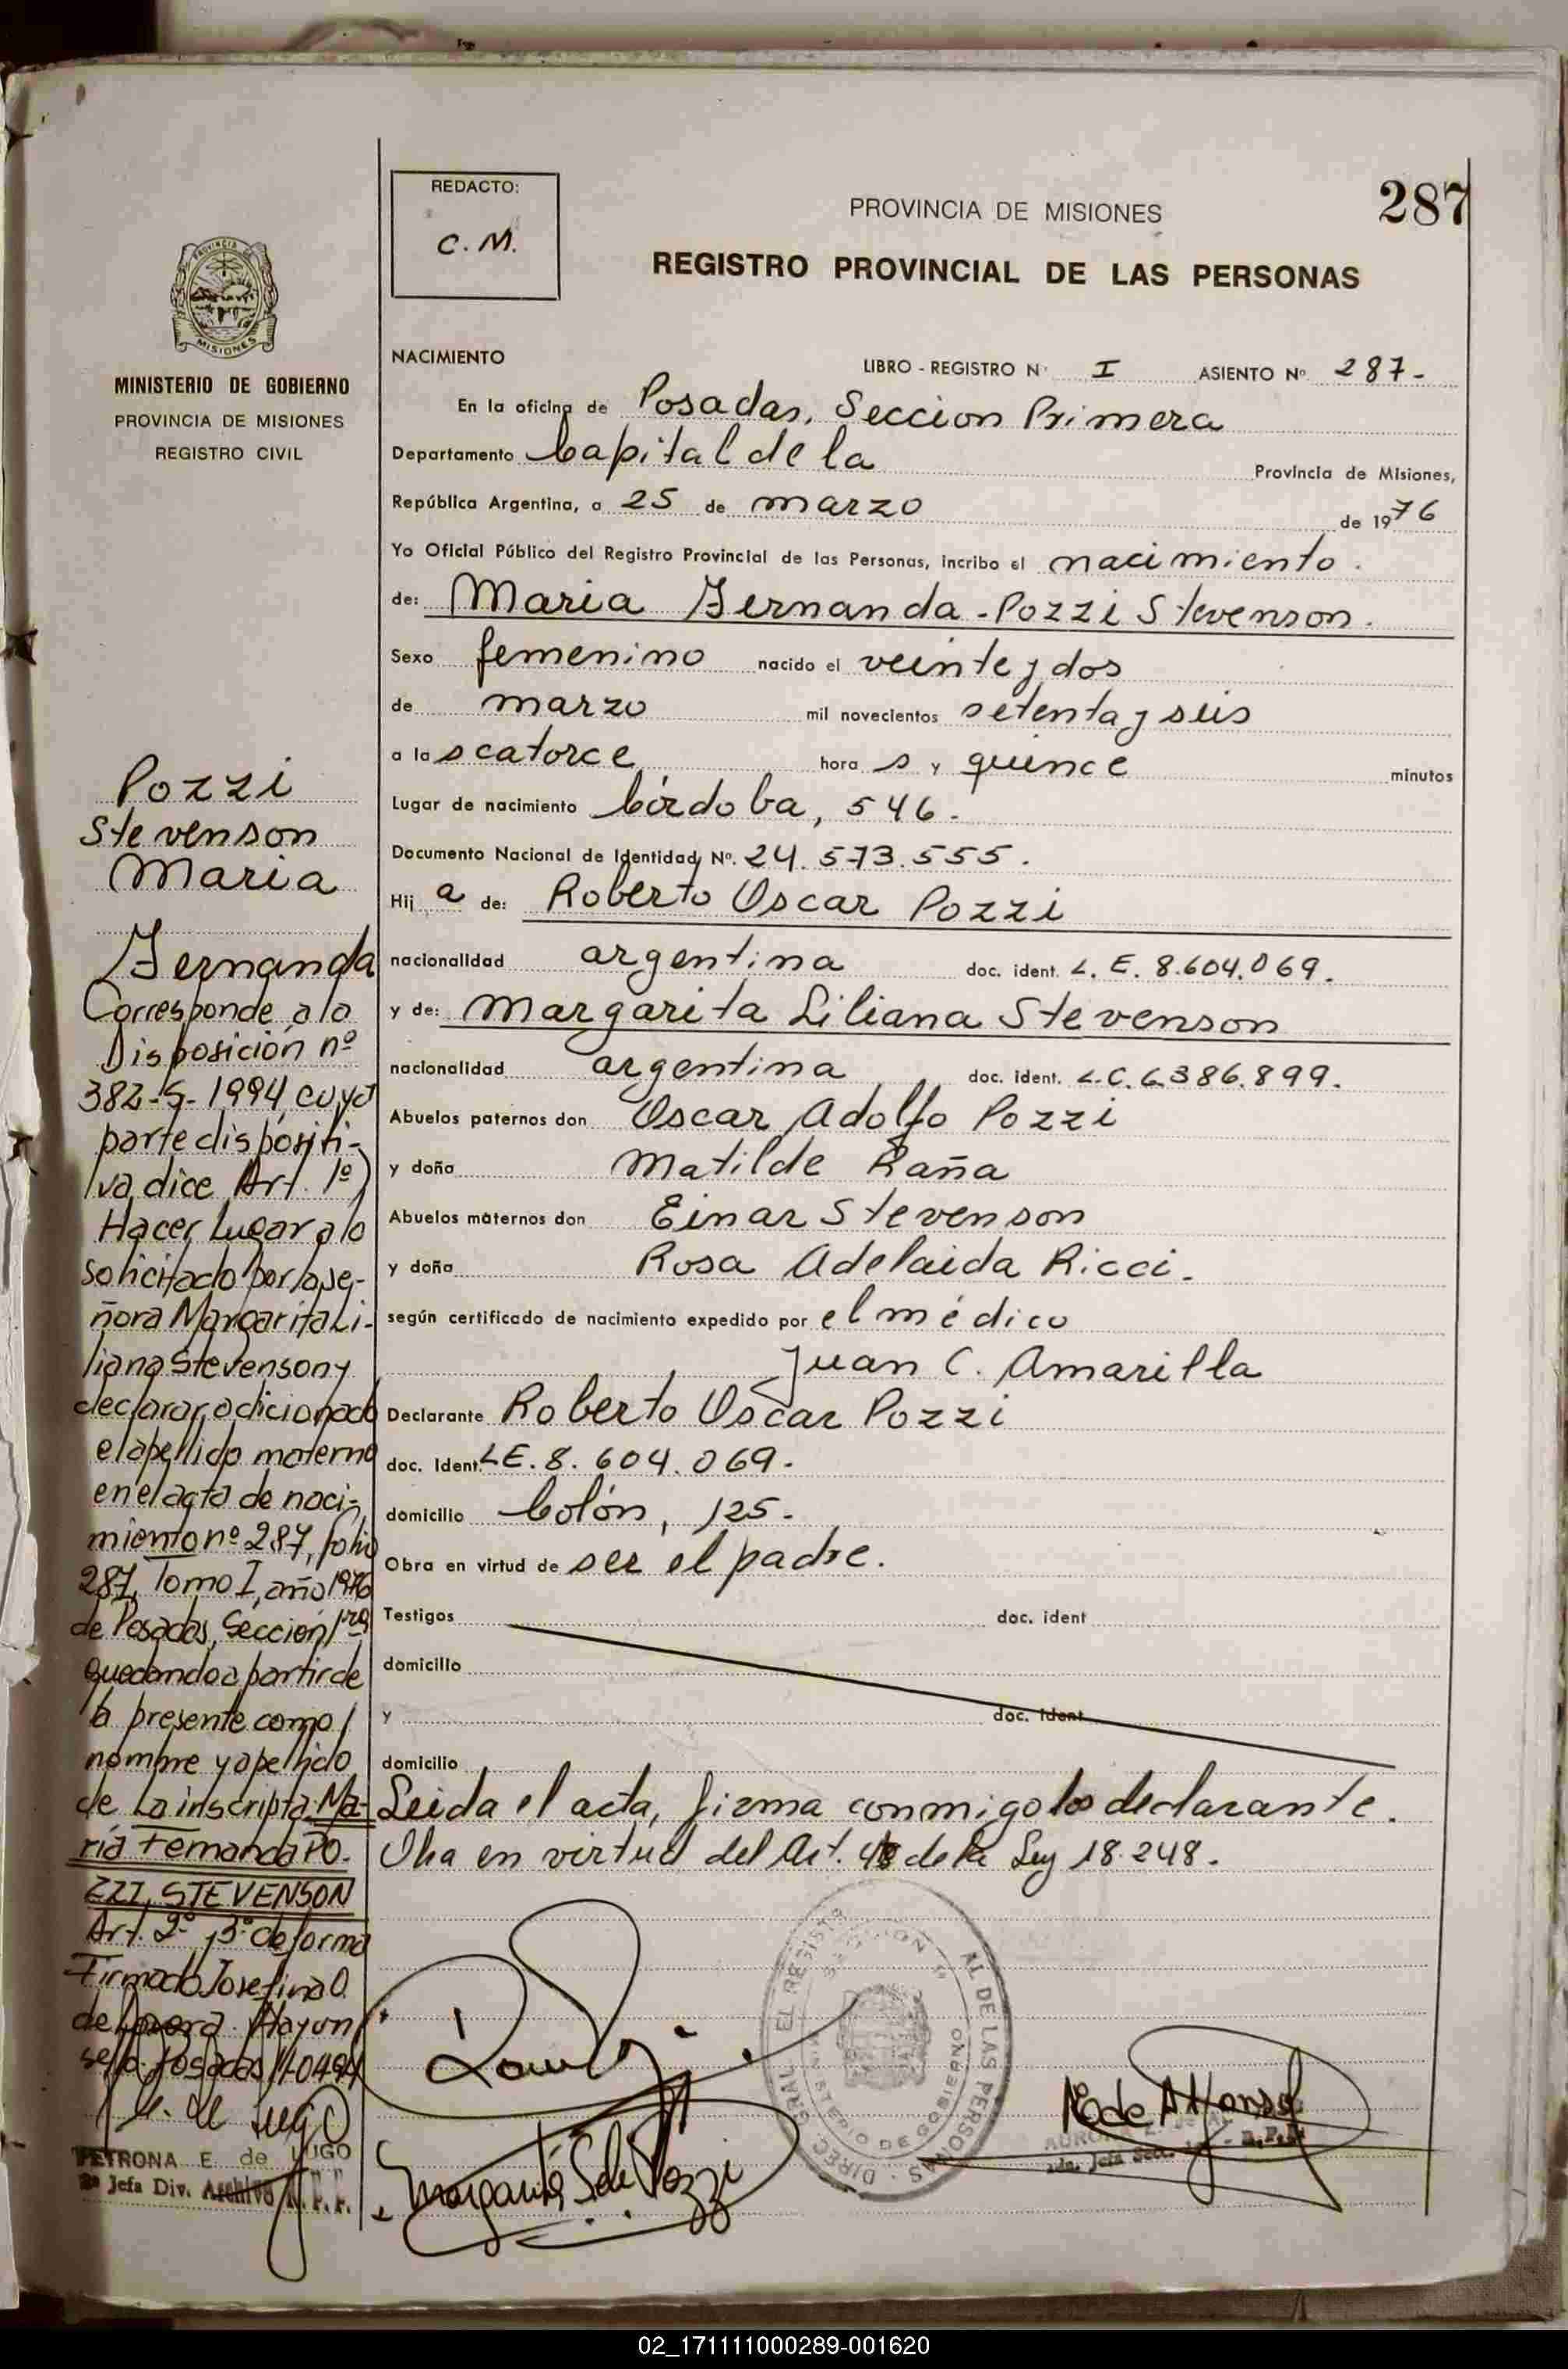 287
REDACTO:
C. M.
PROVINCIA DE MISIONES
REGISTRO PROVINCIAL DE LAS PERSONAS
PROVINCIA DE
MISIONES
MINISTERIO DE GOBIERNO
PROVINCIA DE MISIONES
REGISTRO CIVIL
Pozzi
Stevenson
Maria
Fernanda
Corresponde a lo
Disposición nº
382-S-1994, cuya
parte dispositi-
va dice Art. 1º)
Hacer Lugar a lo
solicitado por la se-
ñora Margarita Li-
liana Stevenson y
declarar adicionado
el apellido materno
en el acta de naci-
miento nº 287, folio
287, Tomo I, año 1976
de Posadas, Sección 1ra
quedando a partir de
la presente como
nombre y apellido
de La inscripta: Ma-
ría Fernanda PO-
ZZI, STEVENSON
Art. 2º y 3º de forma
Firmado Josefina O.
de
sello. Posadas
PETRONA E. de LUGO
2ª Jefa Div. Archivo R. P. P.
NACIMIENTO LIBRO - REGISTRO Nº I ASIENTO Nº 287-
En la oficina de Posadas, Seccion Primera
Departamento Capital de la Provincia de Misiones,
República Argentina, a 25 de marzo de 1976
Yo Oficial Público del Registro Provincial de las Personas, incribo el nacimiento.
de: Maria Fernanda - Pozzi Stevenson.
Sexo femenino nacido el veinte y dos
de marzo mil novecientos setenta y seis
a las catorce hora s y quince minutos
Lugar de nacimiento Córdoba, 546.
Documento Nacional de Identidad Nº. 24.573.555.
Hij a de: Roberto Oscar Pozzi
nacionalidad argentina doc. ident. L. E. 8.604.069.
y de: Margarita Liliana Stevenson
nacionalidad argentina doc. ident. L.C. 6.386.899.
Abuelos paternos don Oscar Adolfo Pozzi
y doña Matilde Raña
Abuelos maternos don Einar Stevenson
y doña Rosa Adelaida Ricci.
según certificado de nacimiento expedido por el médico
Juan C. Amarilla
Declarante Roberto Oscar Pozzi
doc. Ident. LE. 8. 604. 069.
domicilio Colón, 125.
Obra en virtud de ser el padre.
Testigos doc. ident
domicilio
y doc. ident
domicilio
Leida el acta, firma conmigo los declarante.
Una en virtud del Art. de la Ley 18.248.
Margarita S de Pozzi
DIREC. GRAL. EL REGISTR AL DE LAS PERSONAS
MINISTERIO DE GOBIERNO
02_171111000289-001620